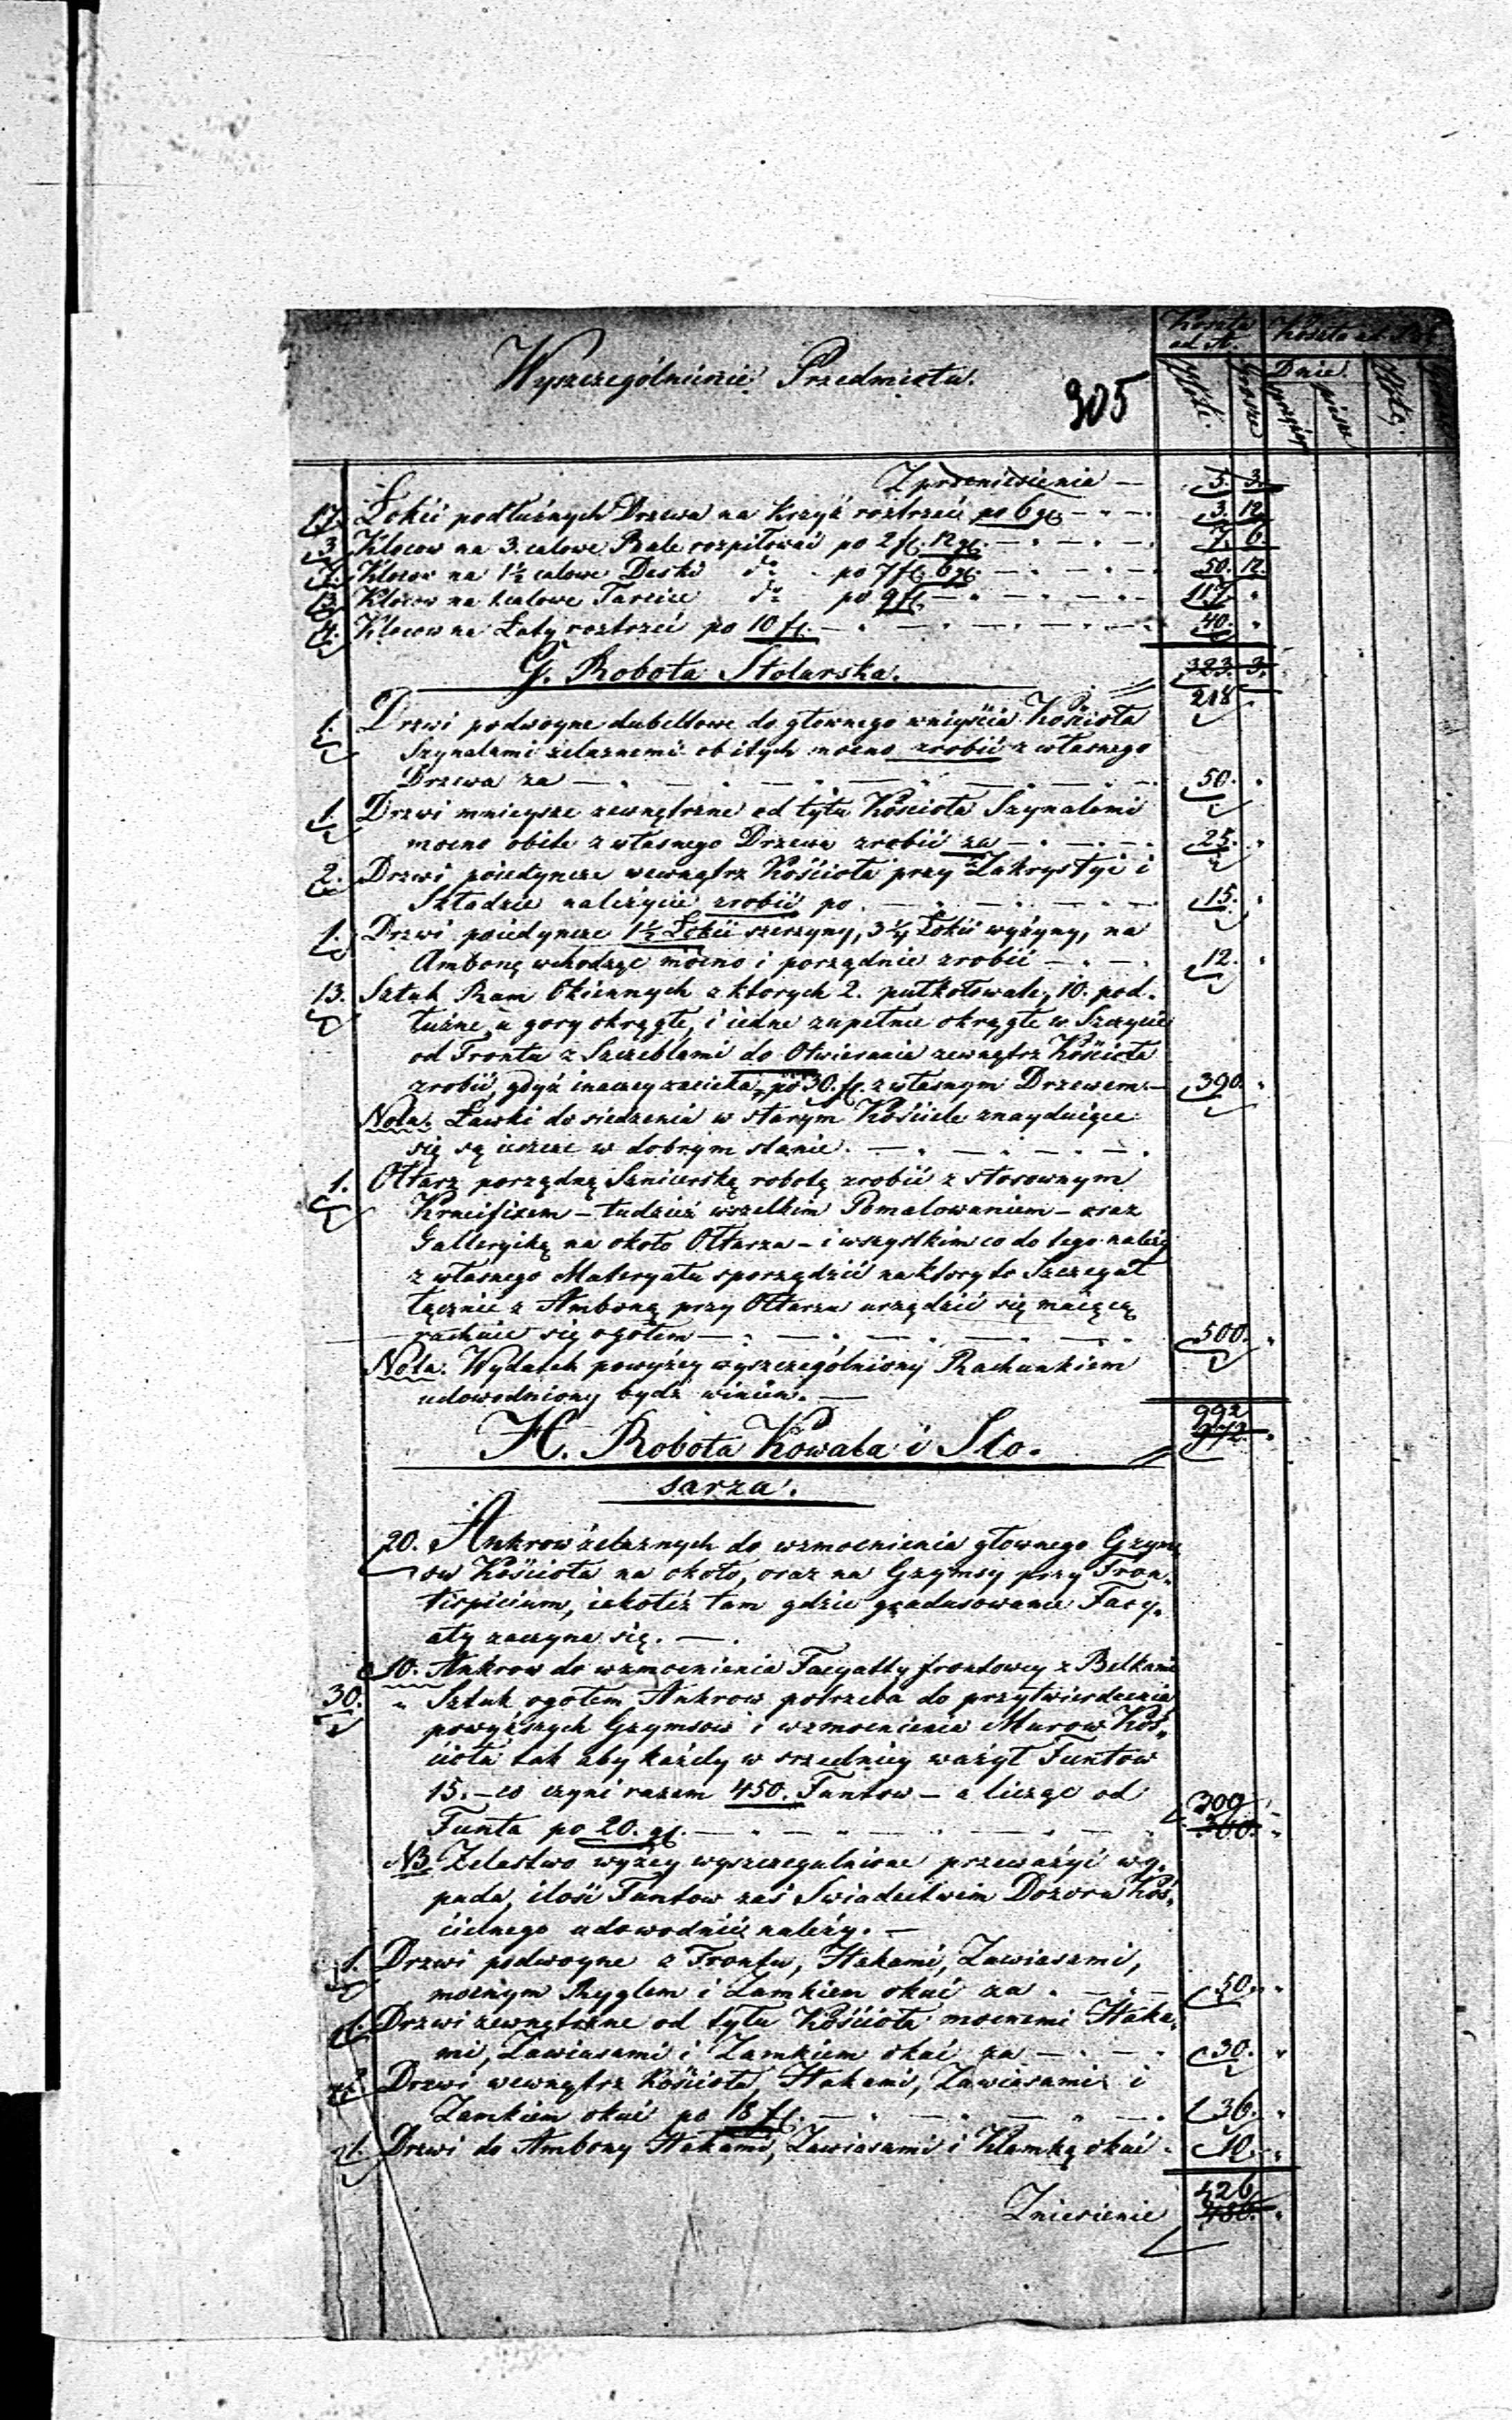 Wyszczególnienie Przedmiotu.
305
Koszta
Koszta
Dnie
Złote.
Grosze
Z przeniesienia — 5. 3.
17. Łokci podłużnych Drzewa na krzyż roztrzeć po 6 gr. 3. 12
3. Klocow na 3. calowe Bale rozpiłować po 2 fl. 12 gr. 7. 6.
7. Klocow na 1½ calowe Deski do po 7 fl. 6 gr. 50. 12.
13. Klocow na calowe Tarcice do po 9 fl. 117
4. Klocow na Łaty roztrzeć po 10 fl. 40.
G. Robota Stolarska. 323. 3.
218
1. Drzwi podwoyne dubeltowe do głownego wniyścia Kościoła
Szynalami żelaznemi obitych mocno zrobić z własnego
Drzewa za 50.
1. Drzwi mnieysze zewnętrzne od tyłu Kościoła Szynalami
mocno obite z własnego Drzewa zrobić za 25.
2. Drzwi poiedyncze wewnątrz Kościoła przy Zakrystyi i
Składzie należycie zrobić po 15.
1. Drzwi poiedyncze 1½ Łokci szerzyny, 3¼ Łokci wyżyny, na
Ambonę wchodząc mocno i porządnie zrobić — 12.
13. Sztuk Ram Okiennych z ktorych 2. pułkołowate, 10. pod-
łużne, u gory okrągłe, i iedne zupełnie okrągłe w Szczycie
od Frontu z Szczeblami do Otwierania zewnątrz Kościoła
zrobić gdyż inaczey zacieka, po 30. fl. z własnym Drzewem — 390.
Nota. Ławki do siedzenia w starym Kościele znayduiące
się są ieszcze w dobrym stanie.
1. Ołtarz porządną Snicerską robotą zrobić z stosownym
Krucifixem — tudzież wszelkim Pomalowaniem — oraz
Galleryikę na około Ołtarza — i wszystkim co do tego należy
z własnego Materyału sporządzić na ktory to Szczeguł
łącznie z Amboną przy Ołtarzu urządzić się maiącą
rachuie się ogołem 500.
Nota. Wydatek powyżey wyszczególniony Rachunkiem
udowodniony bydź winien. —
992
972.
H. Robota Kowala i Slo-
sarza.
20. Ankrow żelaznych do wzmocnienia głownego Gzyms
ow Kościoła na około, oraz na Gzymsy przy Fron-
tispicium, iakoteż tam gdzie gradusowanie Facy-
aty zaczyna się. —
10. Ankrow do wzmocnienia Facyatty frontowey z Belkami
30. „ Sztuk ogołem Ankrow potrzeba do przytwierdzenia
powyższych Gzymsow i wzmocnienia Murow Koś-
cioła tak aby każdy w srzedniey ważył Funtow
15. — co czyni razem 450. Funtow — a licząc od
Funta po 20. gr. 300
300.
NB. Żelastwo wyżey wyszczegulnione przeważyć wy-
pada, ilość Funtow zaś Swiadectwem Dozoru Koś-
cielnego udowodnić należy. —
1. Drzwi podwoyne z Frontu, Hakami, Zawiasami,
mocnym Ryglem i Zamkiem okuć za 50.
1. Drzwi zewnętrzne od tyłu Kościoła mocnemi Haka-
mi, Zawiasami i Zamkiem okuć za — 30.
2. Drzwi wewnątrz Kościoła, Hakami, Zawiasami i
Zamkiem okuć po 18 fl. 36.
1. Drzwi do Ambony Hakami, Zawiasami i Klamką okuć 10.
426
Zniesienie